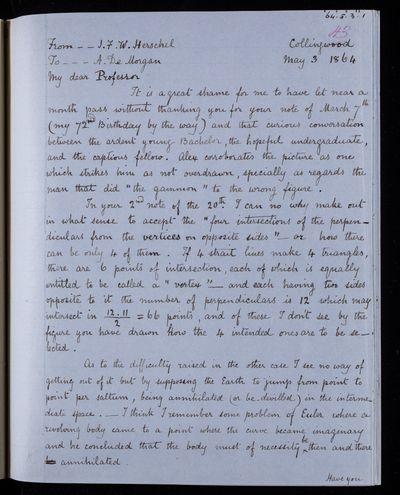 64.5.3.1
43
From -- J.F.W. Herschel Collingwood
To --- A. De Morgan May 3 1864
My dear Professor
It is a great shame for me to have let near a
month pass without thanking you for your note of March 7th
(my 72nd Birthday by the way) and that curious conversation
between the ardent young Bachelor, the hopeful undergraduate,
and the captious fellow. Alex corroborates the picture as one
which strikes him as not overdrawn, specially as regards the
man that did "the gammon" to the wrong figure.
In your 2nd note of the 20th I can no why make out
in what sense to accept the "four intersections of the perpen-
diculars from the vertices on opposite sides" — or how there
can be only 4 of them. If 4 strait lines make 4 triangles,
there are 6 points of intersection, each of which is equally
entitled to be called a "vertex" — and each having two sides
opposite to it the number of perpendiculars is 12 which may
intersect in 12.11/2 = 66 points, and of these I dont see by the
figure you have drawn how the 4 intended ones are to be se-
lected.
As to the difficulty raised in the other case I see no way of
getting out of it but by supposing the Earth to jump from point to
point per saltum, being annihilated (or be-devilled) in the interme-
diate space. — I think I remember some problem of Euler where a
revolving body came to a point where the curve became imaginary
and he concluded that the body must of necessity be then and there
annihilated.
Have you